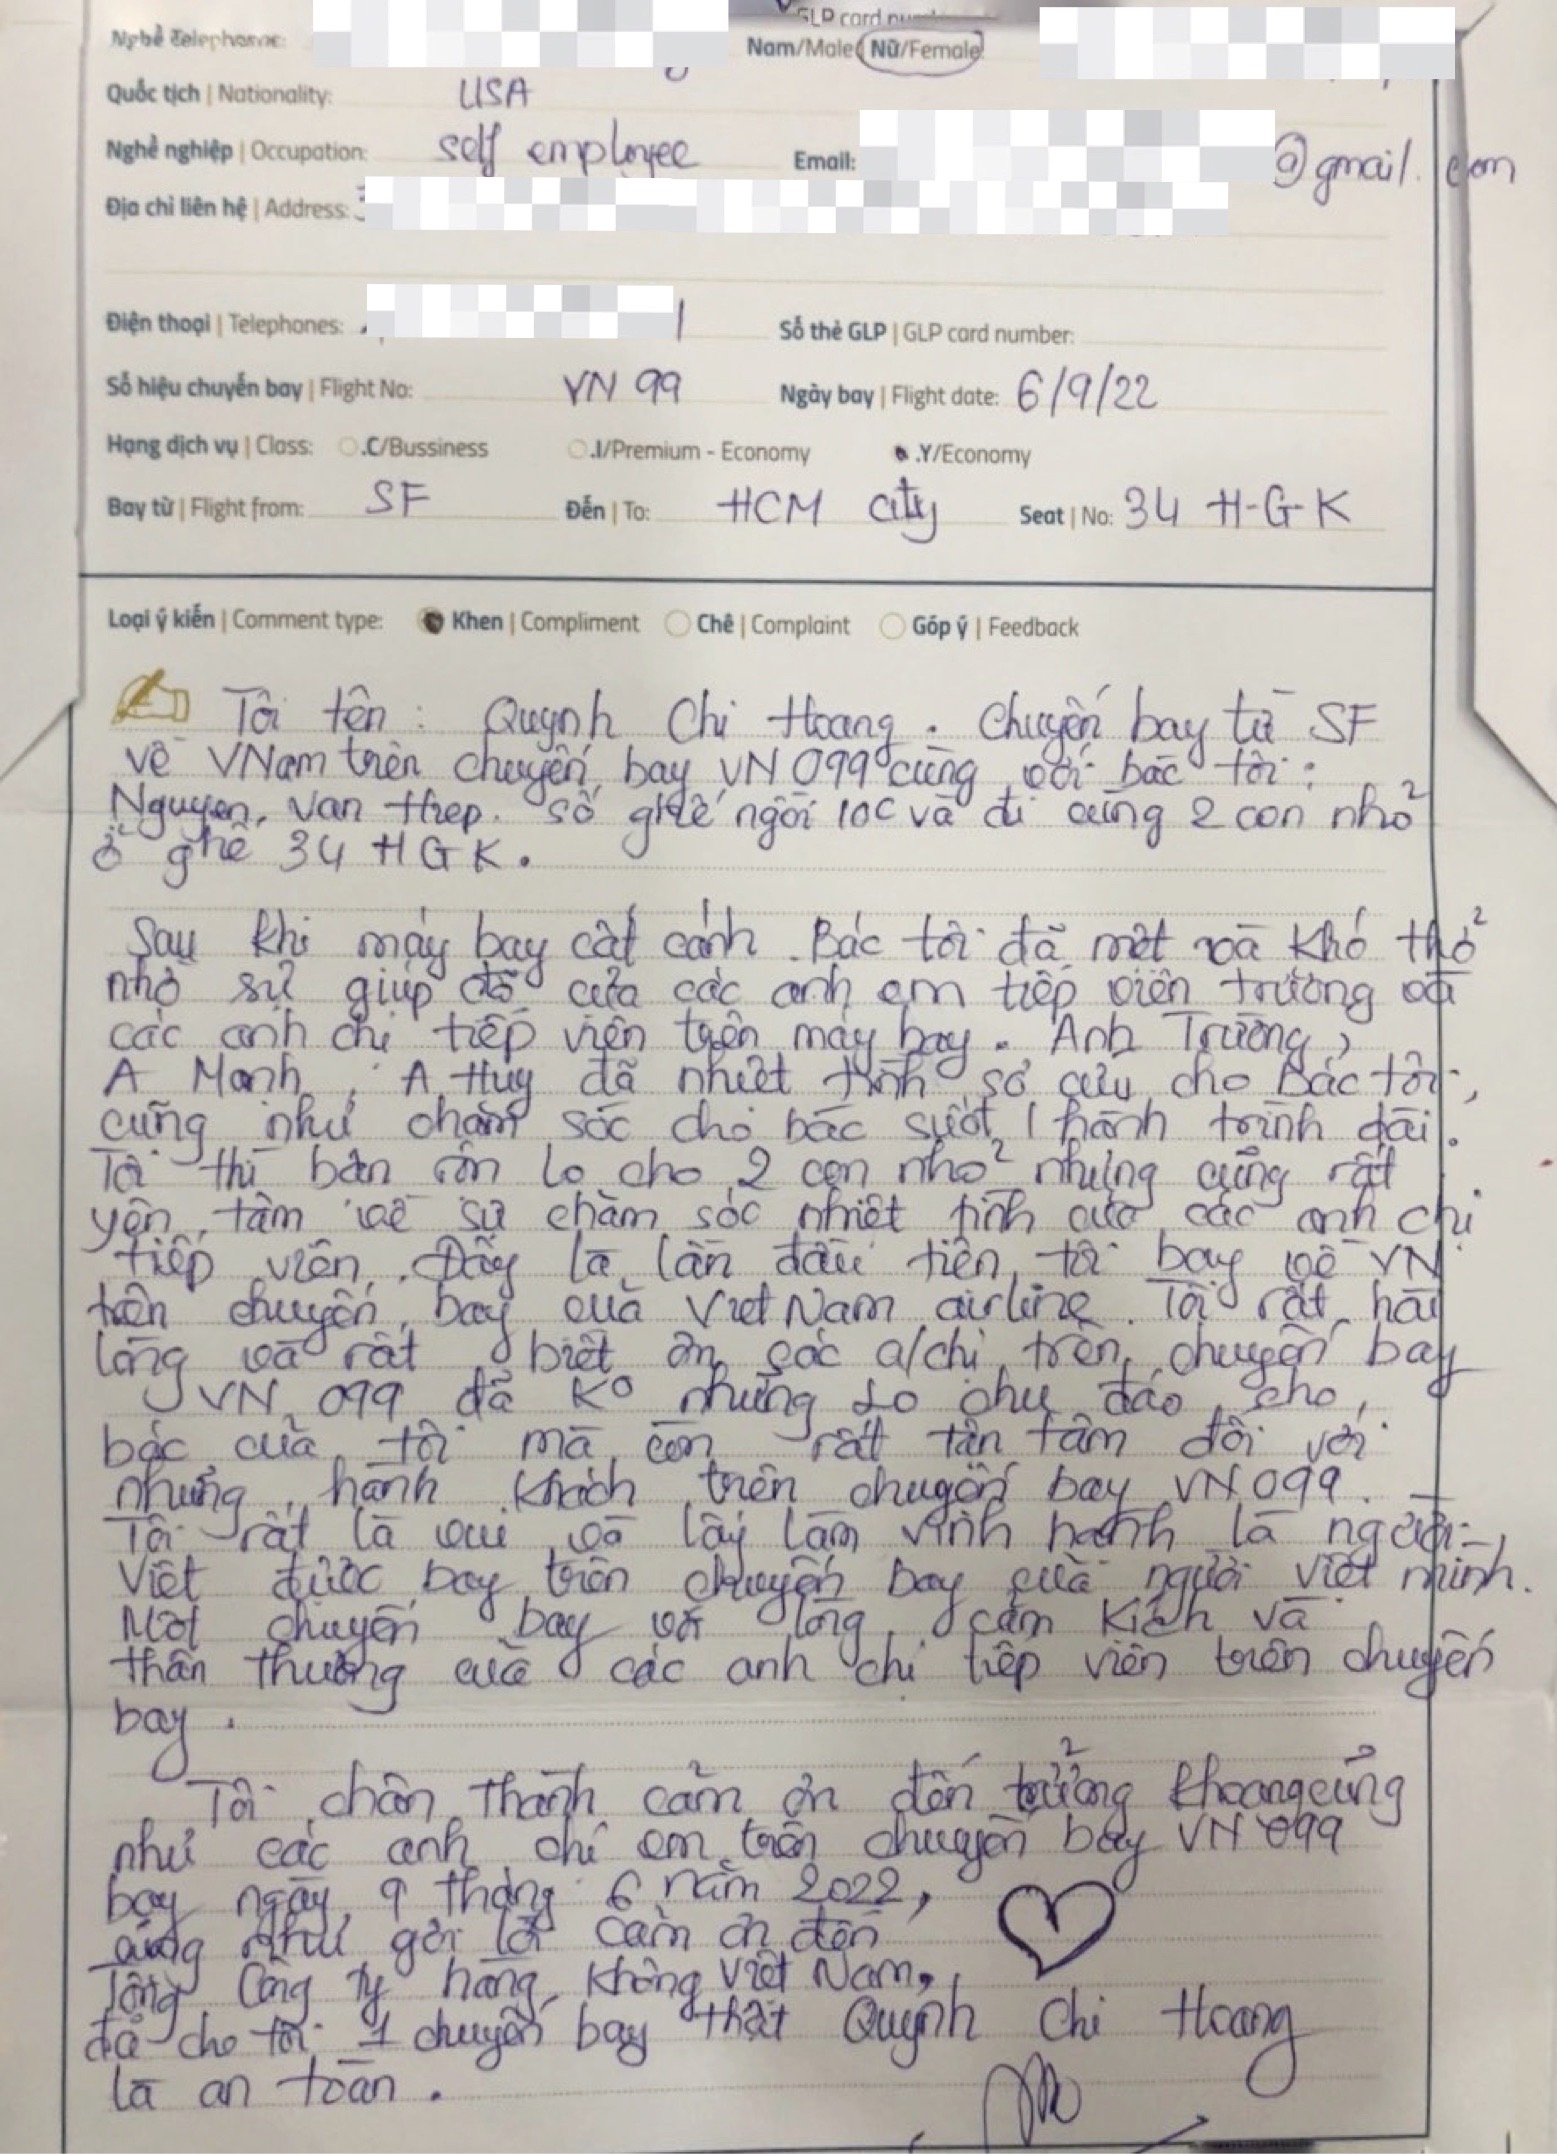 GLP card
Nghề Telephone:
Nam/Male Nữ/Female
Quốc tịch | Nationality: USA
Nghề nghiệp | Occupation: self employee Email: @gmail.com
Địa chỉ liên hệ | Address:
Điện thoại | Telephones: Số thẻ GLP | GLP card number:
Số hiệu chuyến bay | Flight No: VN 99 Ngày bay | Flight date: 6/9/22
Hạng dịch vụ | Class: .C/Bussiness .I/Premium - Economy .Y/Economy
Bay từ | Flight from: SF Đến | To: HCM city Seat | No: 34 H-G-K
Loại ý kiến | Comment type: Khen | Compliment Chê | Complaint Góp ý | Feedback
Tôi tên: Quynh Chi Hoang. Chuyến bay từ SF
về VNam trên chuyến bay VN 099 cùng với bác tôi:
Nguyen Van Thep. Số ghế ngồi 10C và đi cùng 2 con nhỏ
ở ghế 34 H G K.
Sau khi máy bay cất cánh. Bác tôi đã mệt và khó thở
nhờ sự giúp đỡ của các anh em tiếp viên trưởng và
các anh chị tiếp viên trên máy bay. Anh Trường,
A Mạnh, A Huy đã nhiệt tình sơ cứu cho Bác tôi,
cũng như chăm sóc cho bác suốt 1 hành trình dài.
Tôi thì bận rộn lo cho 2 con nhỏ nhưng cũng rất
yên tâm về sự chăm sóc nhiệt tình của các anh chị
tiếp viên. Đây là lần đầu tiên tôi bay về VN
trên chuyến bay của Viet Nam airline. Tôi rất hài
lòng và rất biết ơn các a/chị trên chuyến bay
VN 099 đã Ko những lo chu đáo cho
bác của tôi mà còn rất tận tâm đối với
những hành khách trên chuyến bay VN 099.
Tôi rất là vui và lấy làm vinh hạnh là người
Việt được bay trên chuyến bay của người việt mình.
Một chuyến bay với lòng cảm kích và
thân thương của các anh chị tiếp viên trên chuyến
bay.
Tôi chân thành cảm ơn đến trưởng khoang cũng
như các anh chị em trên chuyến bay VN 099
bay ngày 9 tháng 6 năm 2022,
cũng như gởi lời cảm ơn đến
Tổng Công ty hàng không Việt Nam,
đã cho tôi 1 chuyến bay thật Quynh Chi Hoang
là an toàn.